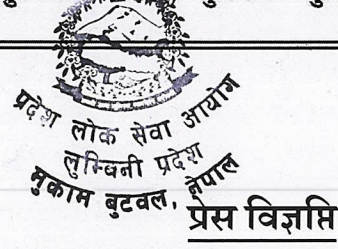 प्रदेश लोक सेवा आयोग
लुम्बिनी प्रदेश
मुकाम बुटवल, नेपाल
प्रेस विज्ञप्ति